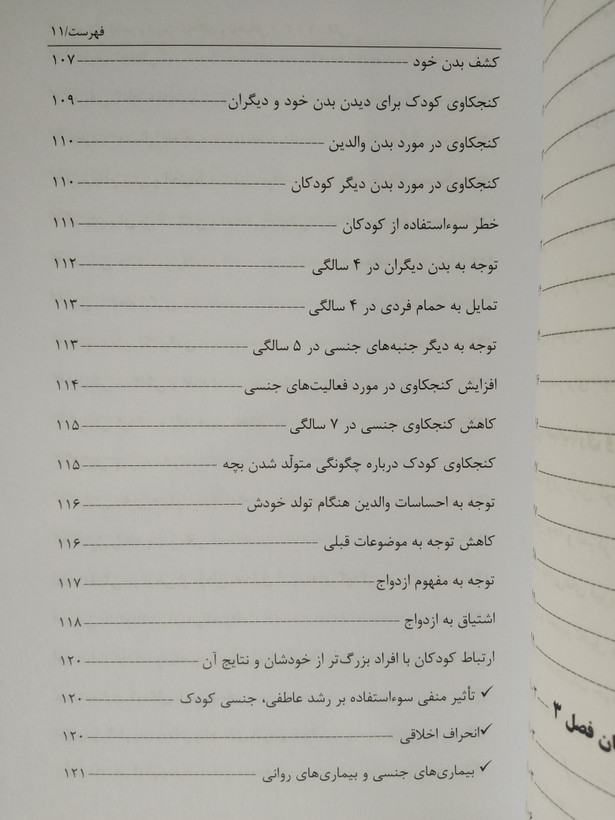 فهرست/۱۱
کشف بدن خود ---------- ۱۰۷
کنجکاوی کودک برای دیدن بدن خود و دیگران ---------- ۱۰۹
کنجکاوی در مورد بدن والدین ---------- ۱۱۰
کنجکاوی در مورد بدن دیگر کودکان ---------- ۱۱۰
خطر سوءاستفاده از کودکان ---------- ۱۱۱
توجه به بدن دیگران در ۴ سالگی ---------- ۱۱۲
تمایل به حمام فردی در ۴ سالگی ---------- ۱۱۳
توجه به دیگر جنبه‌های جنسی در ۵ سالگی ---------- ۱۱۳
افزایش کنجکاوی در مورد فعالیت‌های جنسی ---------- ۱۱۴
کاهش کنجکاوی جنسی در ۷ سالگی ---------- ۱۱۵
کنجکاوی کودک درباره چگونگی متولّد شدن بچه ---------- ۱۱۵
توجه به احساسات والدین هنگام تولد خودش ---------- ۱۱۶
کاهش توجه به موضوعات قبلی ---------- ۱۱۶
توجه به مفهوم ازدواج ---------- ۱۱۷
اشتیاق به ازدواج ---------- ۱۱۸
ارتباط کودکان با افراد بزرگ‌تر از خودشان و نتایج آن ---------- ۱۲۰
✓ تأثیر منفی سوءاستفاده بر رشد عاطفی، جنسی کودک ---------- ۱۲۰
✓انحراف اخلاقی ---------- ۱۲۰
✓ بیماری‌های جنسی و بیماری‌های روانی ---------- ۱۲۱
فصل ۳